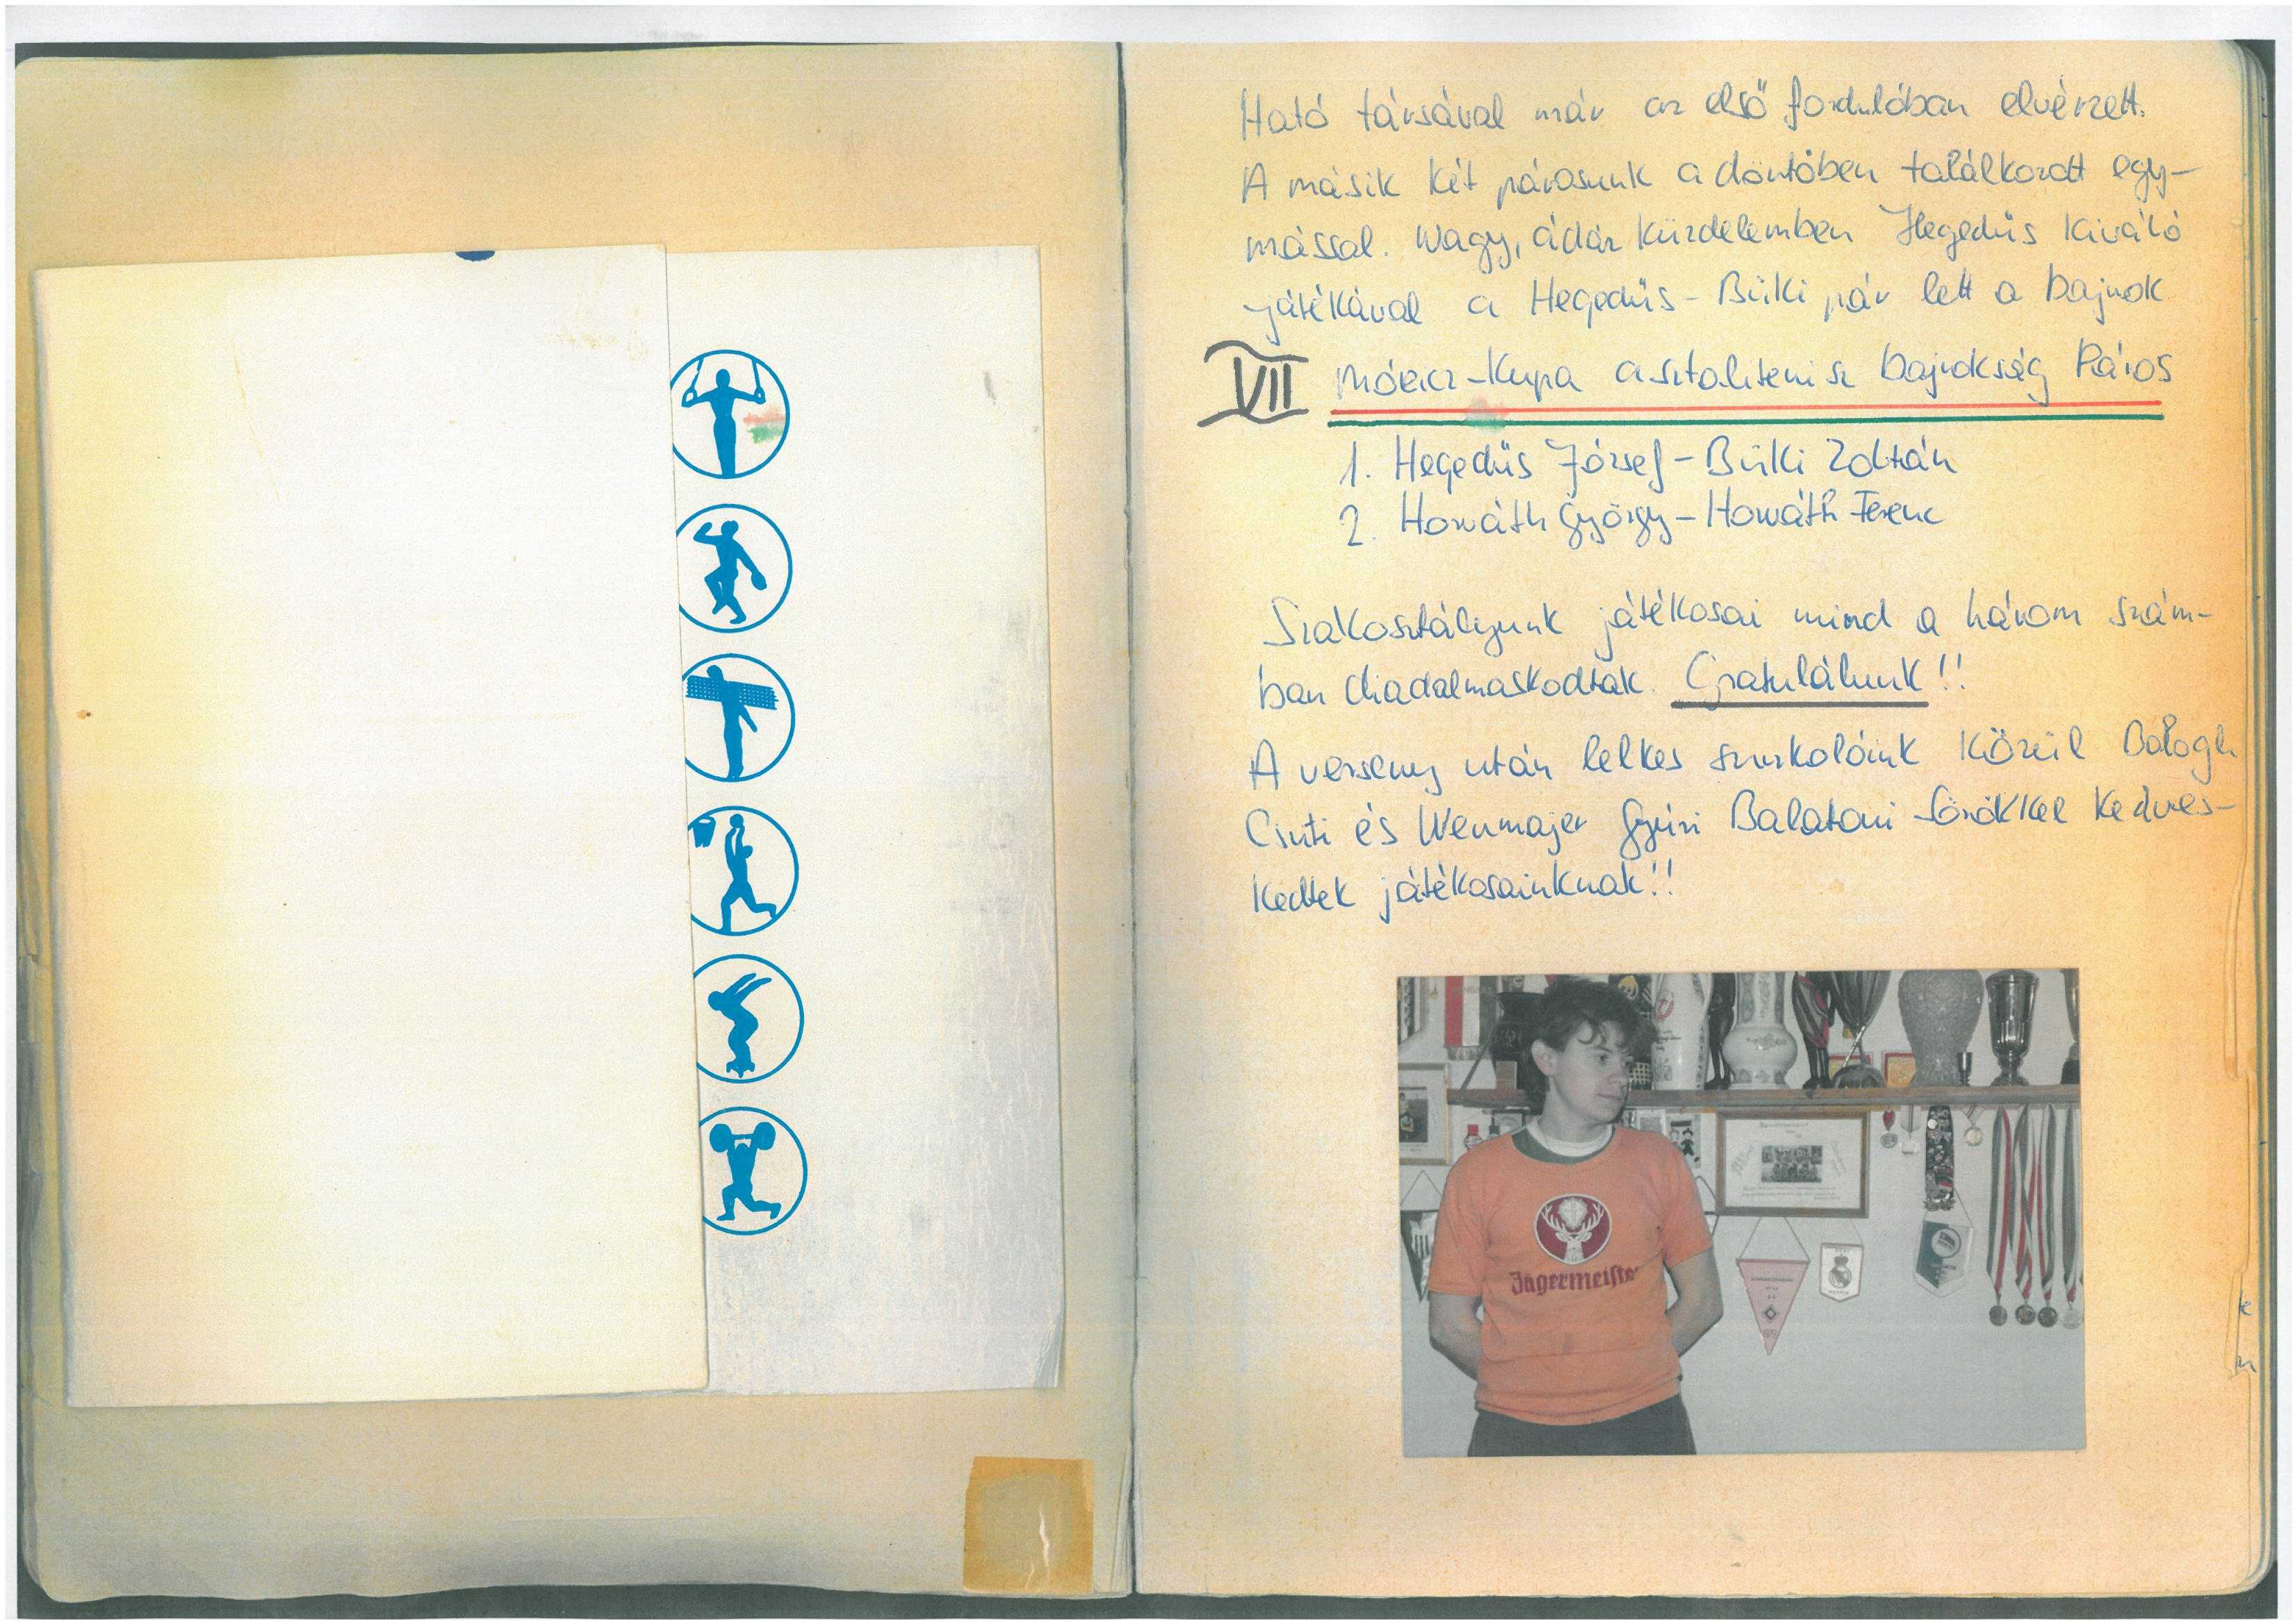 Ható társával már az első fordulóban elvérzett.
A másik két párosunk a döntőben találkozott egy-
mással. Nagy, ádáz küzdelemben Hegedűs kiváló
játékával a Hegedűs - Büki pár lett a bajnok
VII Móricz-Kupa asztalitenisz bajnokság Páros
1. Hegedűs József - Büki Zoltán
2. Horváth György - Horváth Ferenc
Szakosztályunk játékosai mind a három szám-
ban diadalmaskodtak. Gratulálunk!!
A verseny után lelkes szurkolóink közül Balogh
Csuti és Wenmajer Gyuri Balatoni Sörökkel kedves-
kedtek játékosainknak!!
Jägermeister